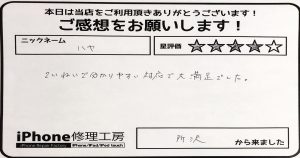 本日は当店をご利用頂きありがとうございます!
ご感想をお願いします!
ニックネーム
ハヤ
星評価
★★★★★
ていねいで分かりやすい対応で大満足でした。
iPhone修理工房
iPhone Repair Factory iPhone/iPad/iPod touch
所沢
から来ました